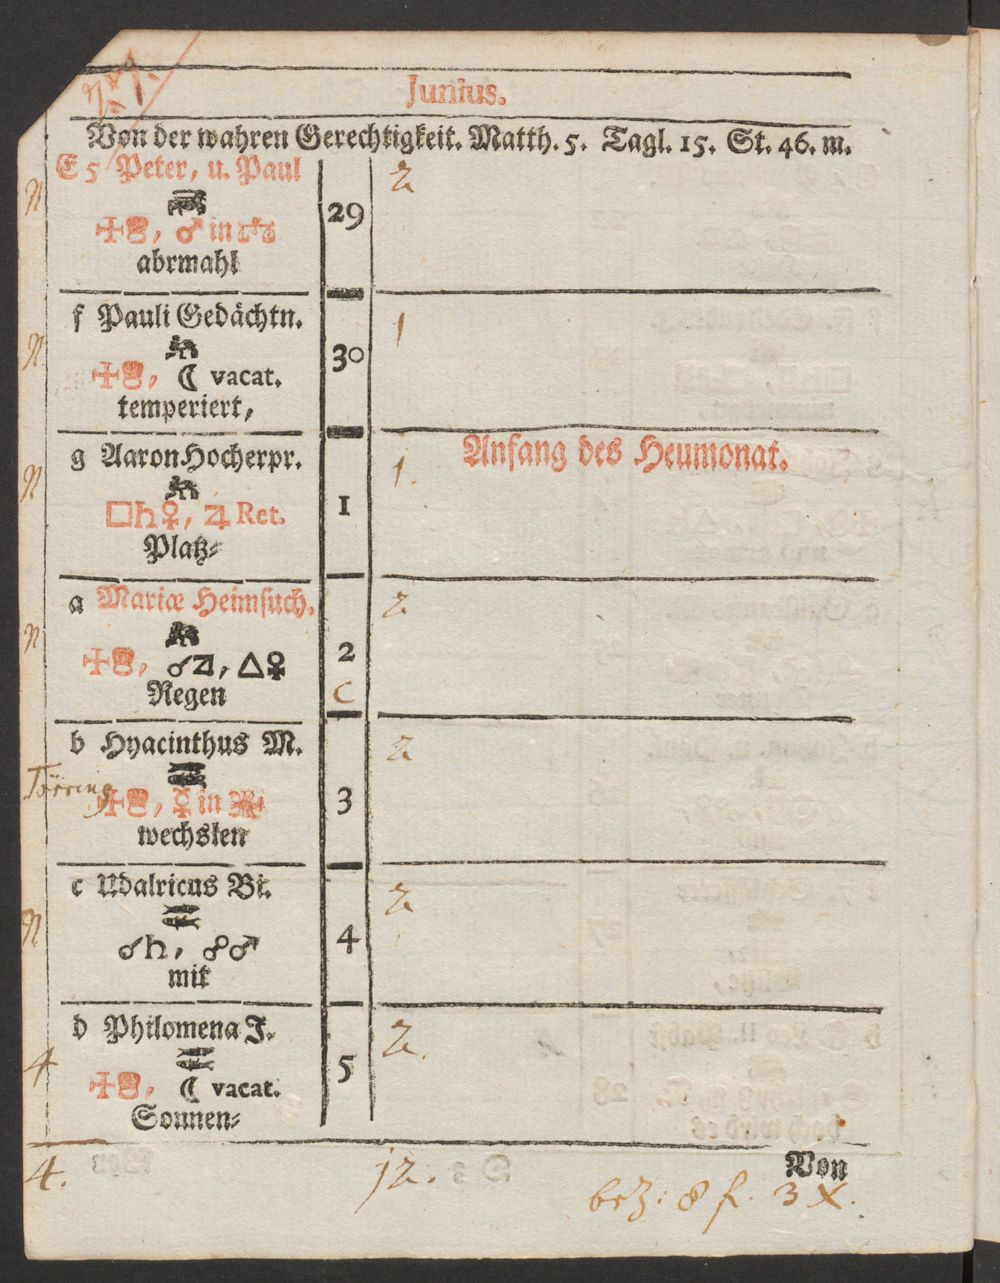 27.
Junius.
Von der wahren Gerechtigkeit. Matth. 5. Tagl. 15. St. 46. m.
E 5 Peter, u. Paul
♂ in
abermahl
29
2
f Pauli Gedächtn.
☾ vacat.
temperiert,
30
1
g Aaron Hocherpr.
□♄♀, ♃ Ret.
Platz-
1
1.
Anfang des Heumonat.
a Mariæ Heimsuch.
☌♃, △♀
Regen
2
C
2
b Hyacinthus M.
Törring
☿ in
wechslen
3
2
c Udalricus Bi.
☌♄, ☍♂
mit
4
2
d Philomena J.
4
☾ vacat.
Sonnen-
5
2.
Von
4.
12.
brz: 8 f. 3 X.